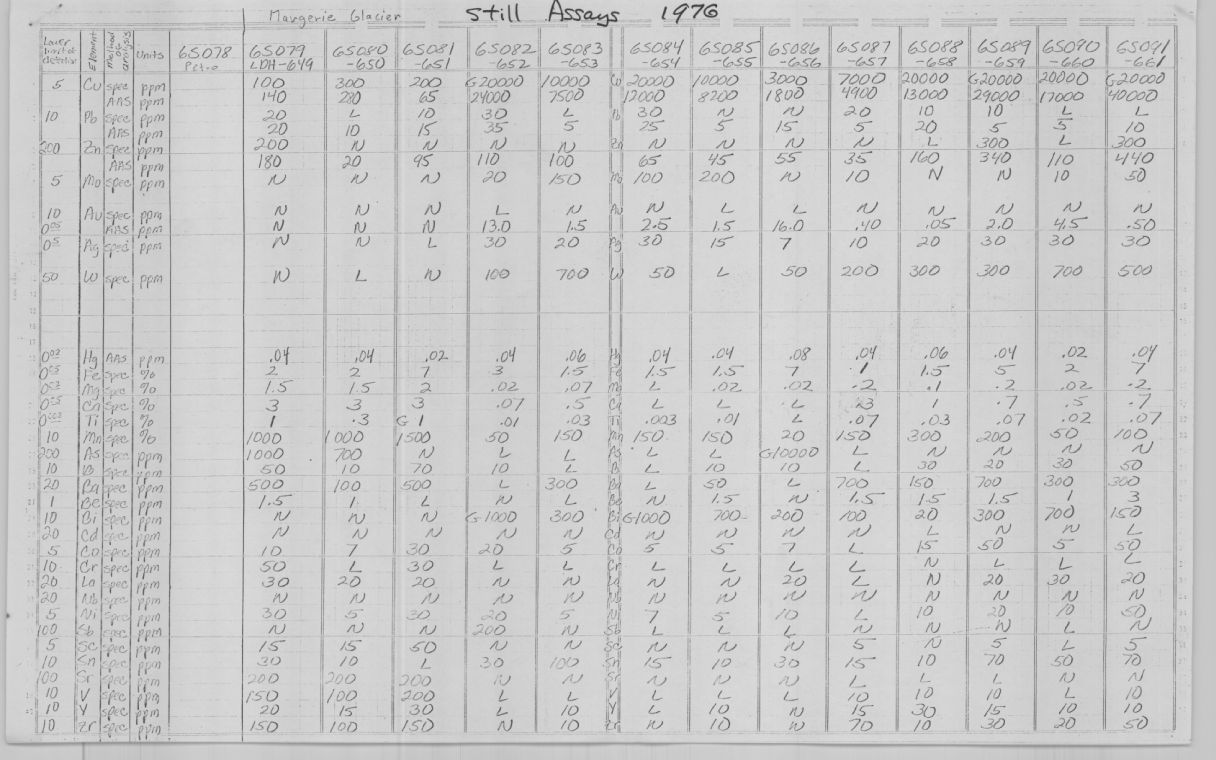 Margerie Glacier still Assays 1976
Lower limit of detection Element method of analysis Units 6S078 6S079 6S080 6S081 6S082 6S083 6S084 6S085 6S086 6S087 6S088 6S089 6S090 6S091
Petro LDH-649 -650 -651 -652 -653 -654 -655 -656 -657 -658 -659 -660 -661
5 Cu spec ppm 100 300 200 G20000 10000 Cu 20000 10000 3000 7000 20000 G20000 20000 G20000
AAS ppm 140 280 65 24000 7500 12000 8200 1800 4900 13000 29000 17000 40000
10 Pb spec ppm 20 L 10 30 L Pb 30 N N 20 10 10 L L
AAS ppm 20 10 15 35 5 25 5 15 5 20 5 5 10
200 Zn spec ppm 200 N N N N Zn N N N N L 300 L 300
AAS ppm 180 20 95 110 100 65 45 55 35 160 340 110 440
5 Mo spec ppm N N N 20 150 Mo 100 200 N 10 N N 10 50
10 Au spec ppm N N N L N Au N L L N N N N N
0.05 AAS ppm N N N 13.0 1.5 2.5 1.5 16.0 .40 .05 2.0 4.5 .50
0.5 Ag spec ppm N N L 30 20 Ag 30 15 7 10 20 30 30 30
50 W spec ppm N L N 100 700 W 50 L 50 200 300 300 700 500
0.02 Hg AAS ppm .04 .04 .02 .04 .06 Hg .04 .04 .08 .04 .06 .04 .02 .04
0.05 Fe spec % 2 2 7 3 1.5 Fe 1.5 1.5 7 1 1.5 5 2 7
0.02 Mg spec % 1.5 1.5 2 .02 .07 Mg L .02 .02 .2 .1 .2 .02 .2
0.05 Ca spec % 3 3 3 .07 .5 Ca L L L .3 1 .7 .5 .7
0.002 Ti spec % 1 .3 G 1 .01 .03 Ti .003 .01 L .07 .03 .07 .02 .07
10 Mn spec % 1000 1000 1500 50 150 Mn 150 150 20 150 300 200 50 100
200 As spec ppm 1000 700 N L L As L L G10000 L N N N N
10 B spec ppm 50 10 70 10 L B L 10 10 L 30 20 30 50
20 Ba spec ppm 500 100 500 L 300 Ba L 50 L 700 150 700 300 300
1 Be spec ppm 1.5 1 L N L Be N 1.5 N 1.5 1.5 1.5 1 3
10 Bi spec ppm N N N G1000 300 Bi G1000 700 200 100 20 300 700 150
20 Cd spec ppm N N N N N Cd N N N N L N N L
5 Co spec ppm 10 7 30 20 5 Co 5 5 7 L 15 50 5 50
10 Cr spec ppm 50 L 30 L L Cr L L L L N L L L
20 La spec ppm 30 20 20 N N La N N 20 L N 20 30 20
20 Nb spec ppm N N N N N Nb N N N N N N N N
5 Ni spec ppm 30 5 30 20 5 Ni 7 5 10 L 10 20 10 50
100 Sb spec ppm N N N 200 N Sb L L L N N N L N
5 Sc spec ppm 15 15 50 N N Sc N N N 5 N 5 L 5
10 Sn spec ppm 30 10 L 30 100 Sn 15 10 30 15 10 70 50 70
100 Sr spec ppm 200 200 200 N N Sr N N N L L L N L
10 V spec ppm 150 100 200 L L V L L L 10 10 10 L 10
10 Y spec ppm 20 15 30 L 10 Y L 10 N 15 30 15 10 10
10 Zr spec ppm 150 100 150 N 10 Zr N 10 N 70 10 30 20 50